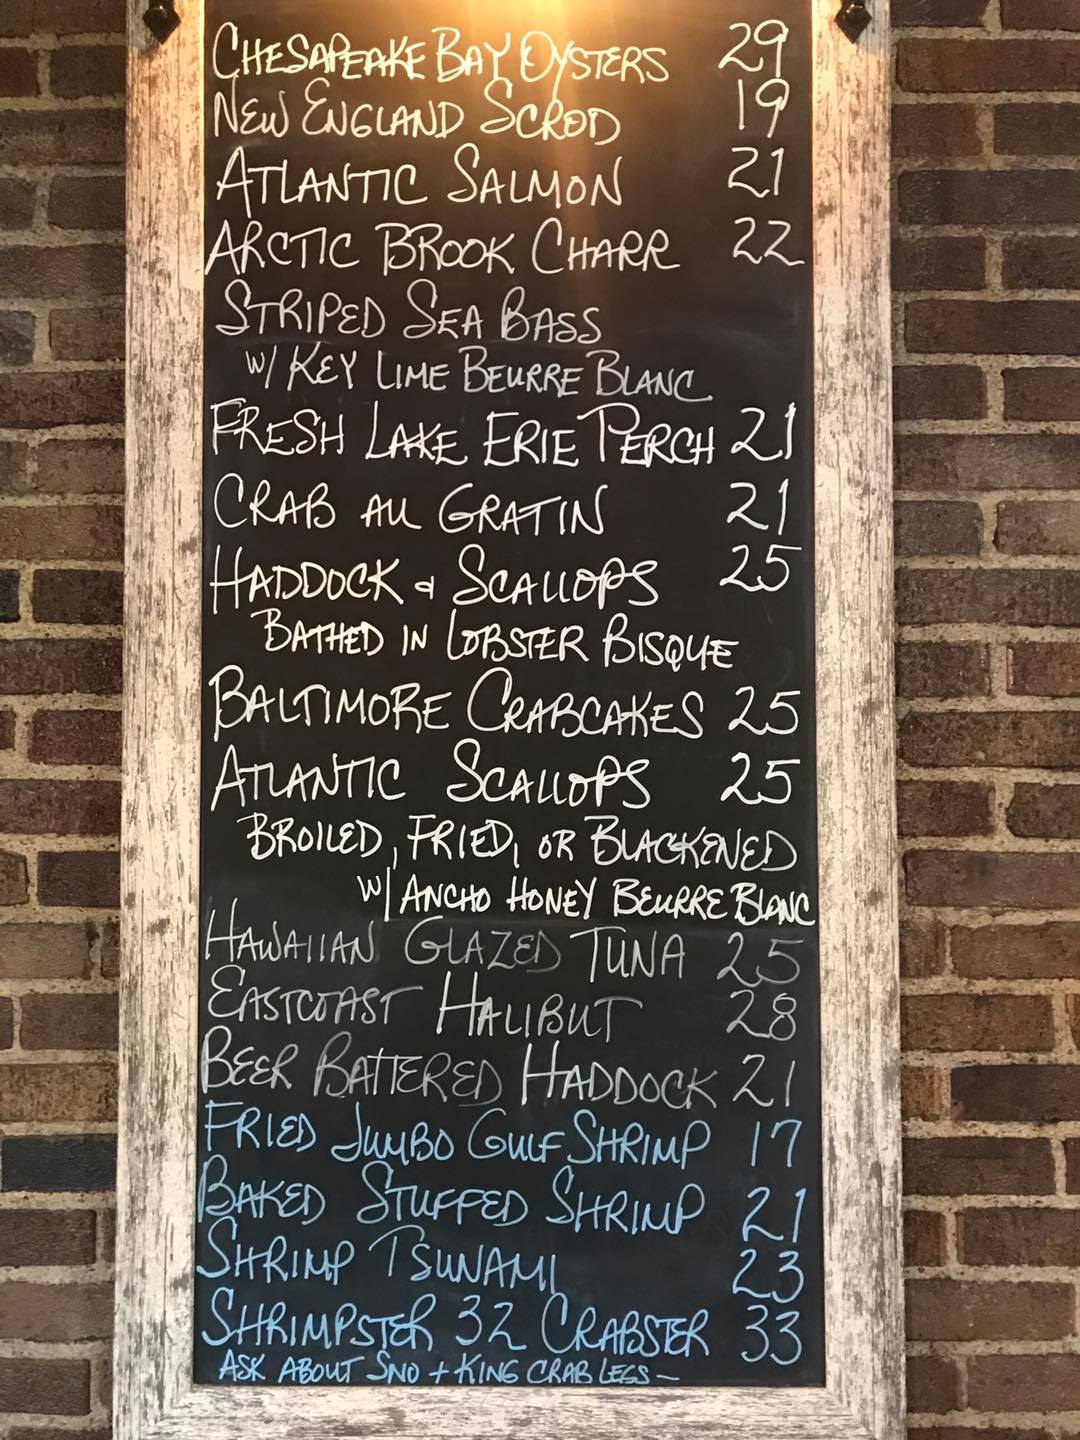 CHESAPEAKE BAY OYSTERS 29
NEW ENGLAND SCROD 19
ATLANTIC SALMON 21
ARCTIC BROOK CHARR 22
STRIPED SEA BASS
W/ KEY LIME BEURRE BLANC
FRESH LAKE ERIE PERCH 21
CRAB AU GRATIN 21
HADDOCK & SCALLOPS 25
BATHED IN LOBSTER BISQUE
BALTIMORE CRABCAKES 25
ATLANTIC SCALLOPS 25
BROILED, FRIED, OR BLACKENED
W/ ANCHO HONEY BEURRE BLANC
HAWAIIAN GLAZED TUNA 25
EASTCOAST HALIBUT 28
BEER BATTERED HADDOCK 21
FRIED JUMBO GULF SHRIMP 17
BAKED STUFFED SHRIMP 21
SHRIMP TSUNAMI 23
SHRIMPSTER 32 CRABSTER 33
ASK ABOUT SNO + KING CRAB LEGS —